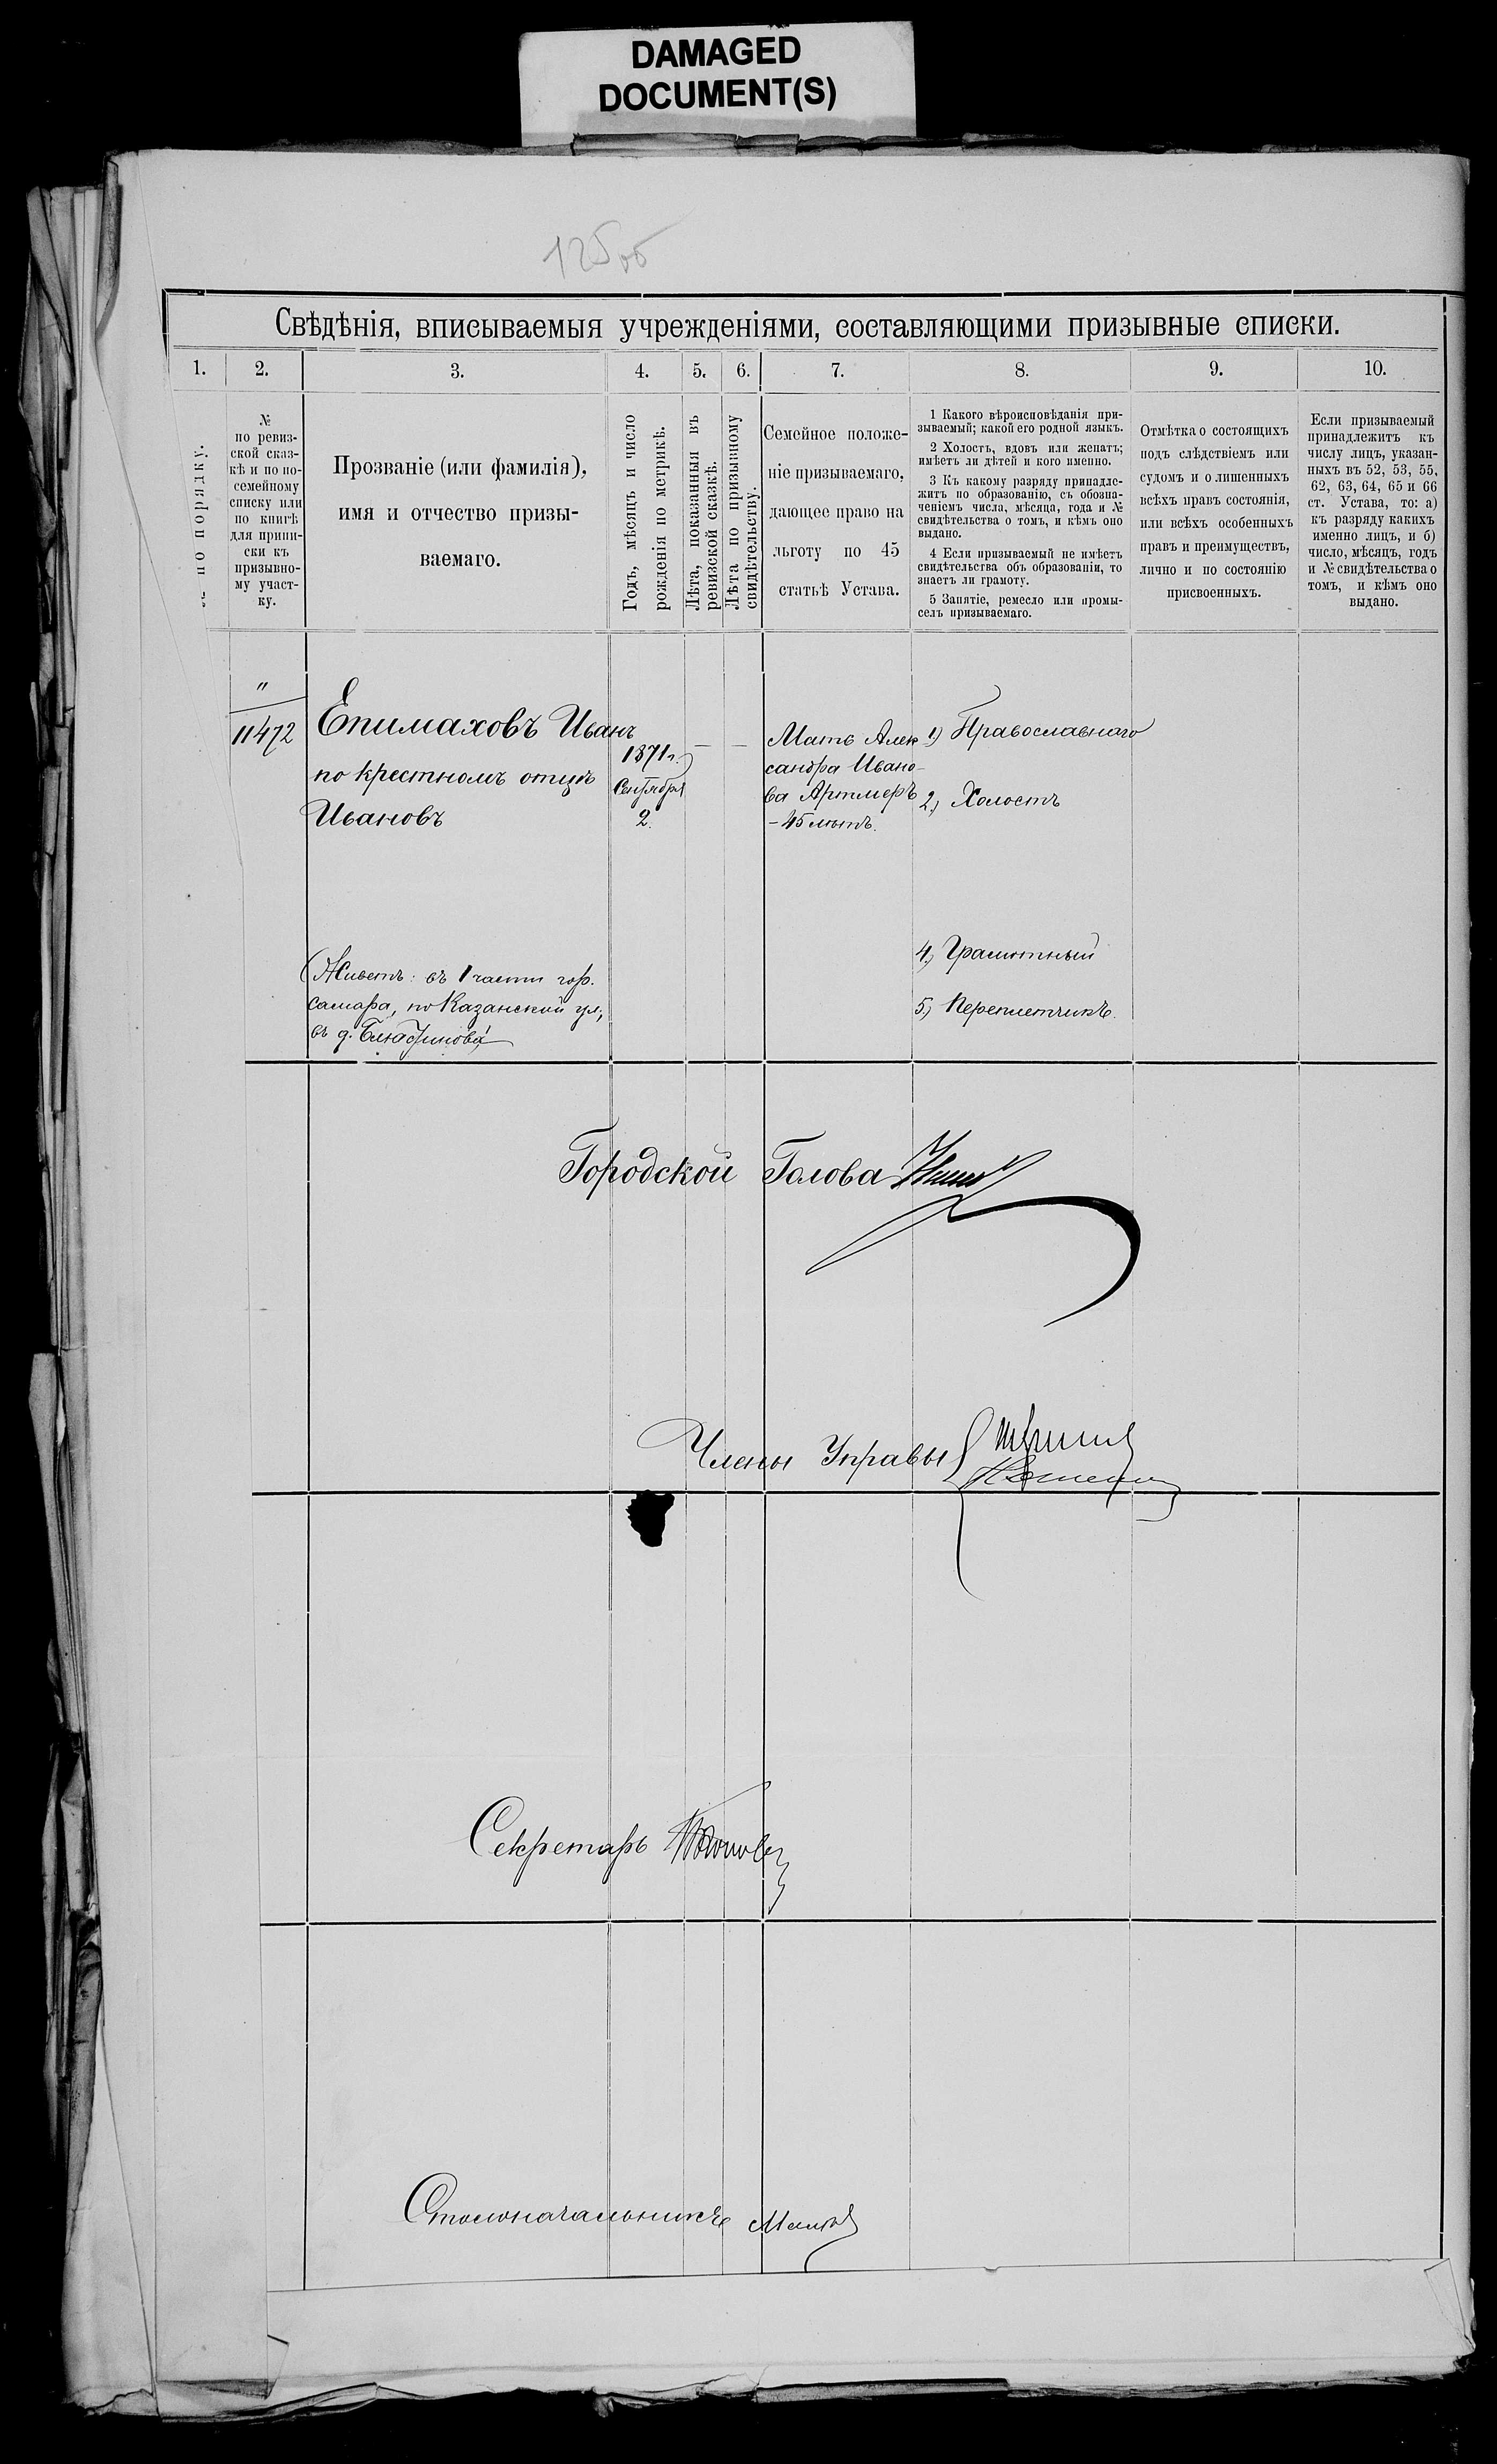 DAMAGED
DOCUMENT(S)
125об
Свѣдѣнія, вписываемыя учрежденіями, составляющими призывные списки.
1. 2. 3. 4. 5. 6. 7. 8. 9. 10.
по порядку.
№
по ревиз-
ской сказ-
кѣ и по по-
семейному
списку или
по книгѣ
для припи-
ски къ
призывно-
му участ-
ку.
Прозваніе (или фамилія),
имя и отчество призы-
ваемаго.
Годъ, мѣсяцъ и число
рожденія по метрикѣ.
Лѣта, показанныя въ
ревизской сказкѣ.
Лѣта по призывному
свидѣтельству.
Семейное положе-
ніе призываемаго,
дающее право на
льготу по 45
статьѣ Устава.
1 Какого вѣроисповѣданія при-
зываемый; какой его родной языкъ.
2 Холостъ, вдовъ или женатъ;
имѣетъ ли дѣтей и кого именно.
3 Къ какому разряду принадле-
житъ по образованію, съ обозна-
ченіемъ числа, мѣсяца, года и №
свидѣтельства о томъ, и кѣмъ оно
выдано.
4 Если призываемый не имѣетъ
свидѣтельства объ образованіи, то
знаетъ ли грамоту.
5 Занятіе, ремесло или промы-
селъ призываемаго.
Отмѣтка о состоящихъ
подъ слѣдствіемъ или
судомъ и о лишенныхъ
всѣхъ правъ состоянія,
или всѣхъ особенныхъ
правъ и преимуществъ,
лично и по состоянію
присвоенныхъ.
Если призываемый
принадлежитъ къ
числу лицъ, указан-
ныхъ въ 52, 53, 55,
62, 63, 64, 65 и 66
ст. Устава, то: а)
къ разряду какихъ
именно лицъ, и б)
число, мѣсяцъ, годъ
и № свидѣтельства о
томъ, и кѣмъ оно
выдано.
"
11472
Епимаховъ Иванъ
по крестномъ отцѣ
Ивановъ
1871 г.
Сентября
2.
— —
Мать Алек
сандра Ивано-
ва
- 45 лѣтъ.
1) Православнаго
2) Холостъ
4) Грамотный
5) Переплетчикъ.
(Живетъ: въ 1 части гор.
Самара, по Казанской ул;
въ д.
Городской Голова
Члены Управы
Секретарь
Столоначальникъ